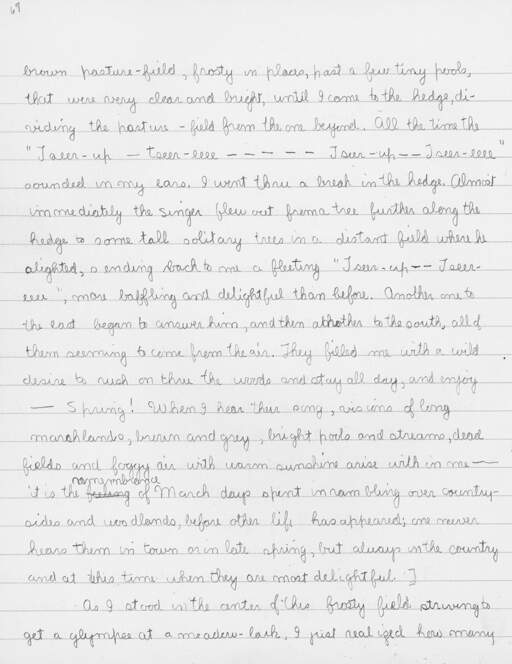 69
brown pasture-field, frosty in places, past a few tiny pools,
that were very clear and bright, until I came to the hedge, di-
viding the pasture-field from the one beyond. All the time the
"Tseer-up — tseer-eeee — — — — — Tseer-up — — Tseer-eeee"
sounded in my ears. I went thru a break in the hedge. Almost
immediately the singer flew out from a tree further along the
hedge to some tall solitary trees in a distant field where he
alighted, sending back to me a fleeting "Tseer-up — — Tseer-
eeee", more baffling and delightful than before. Another one to
the east began to answer him, and then another to the south, all of
them seeming to come from the air. They filled me with a wild
desire to rush on thru the woods and stay all day, and enjoy
— Spring! When I hear their song, visions of long
marshlands, brown and grey, bright pools and streams, dead
fields and foggy air with warm sunshine arise within me —
remembrance
it is the of March days spent in rambling over country-
sides and woodlands, before other life has appeared; one never
hears them in town or in late spring, but always in the country
and at this time when they are most delightful. ]
As I stood in the center of this frosty field striving to
get a glympse at a meadow-lark, I just realized how many